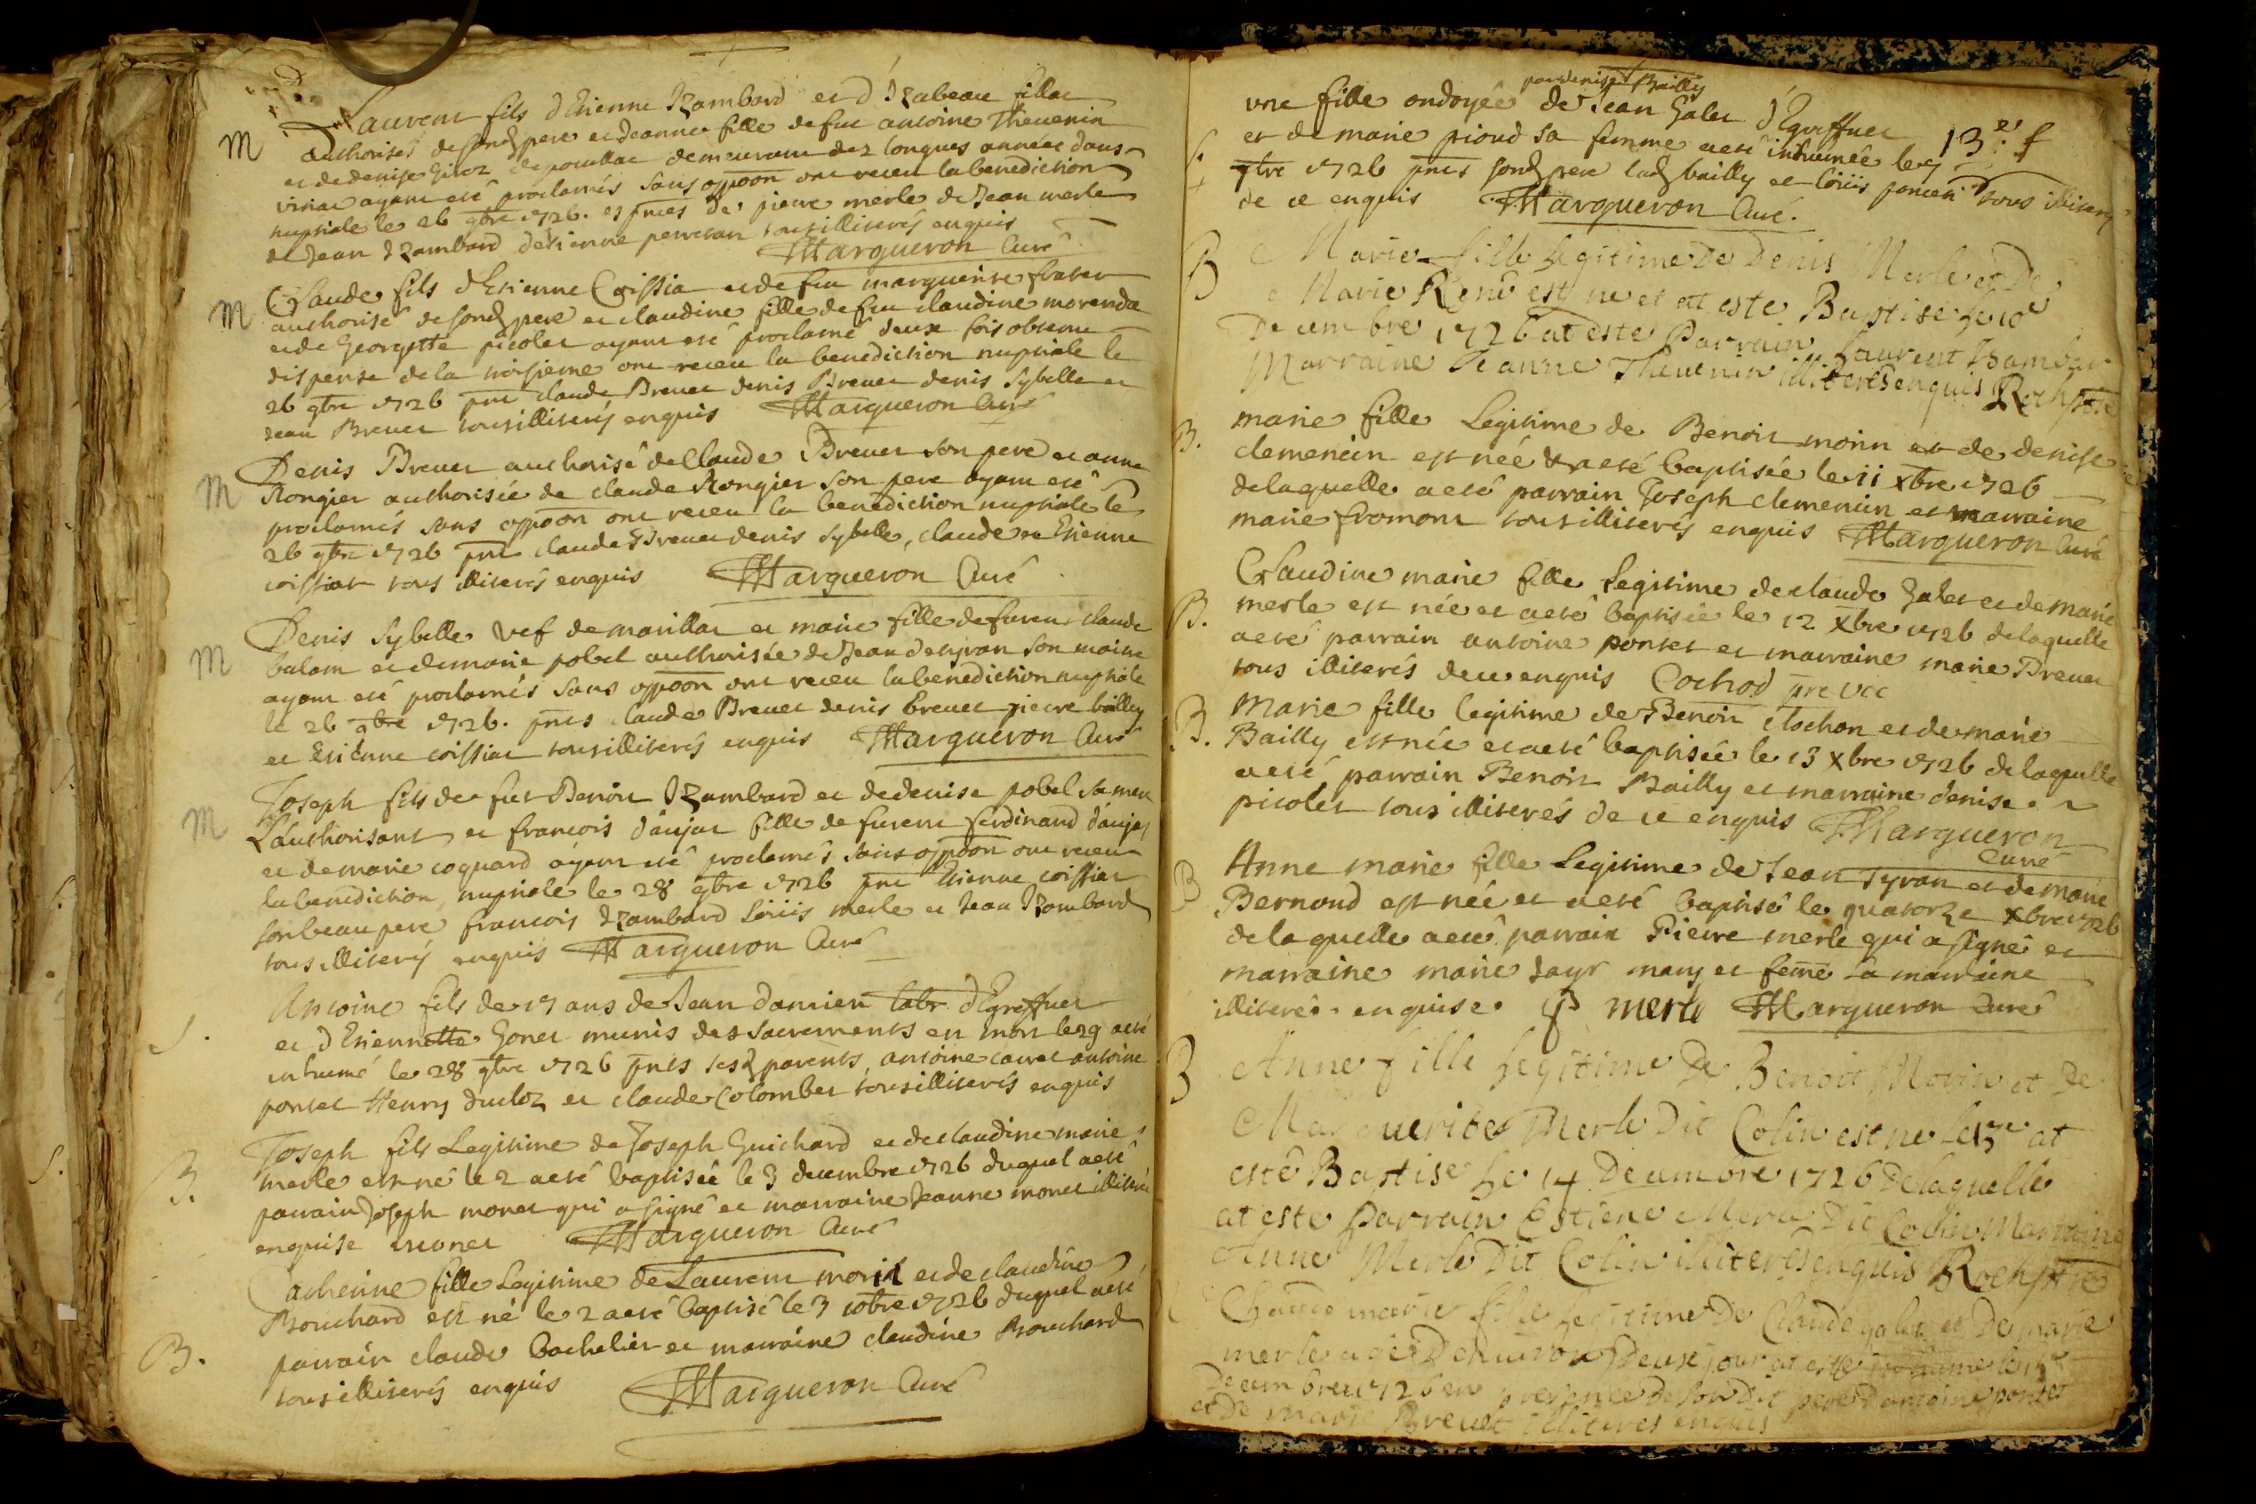 M Laurent fils d'Etienne Izambard et d'Izabeau fillat
authorisés de sond pere et Jeanne fille de fut antoine Thevenin
et de denise de pouillat demeurant dez longues années dans
viriat ayant eté proclamés sans oppoon ont receu la benediction
nuptiale le 26 9bre 1726. es pnces de pierre merle de Jean merle
de Jean Izambard d'etienne perretan tous illiterés enquis
Margueron Curé
M Claude fils d'Etienne Coissia et de fut marguerite frater
authorisé de sond pere et claudine fille de fut claudine morandat
et de Georgette picolet ayant eté proclamé deux fois obtenu
dispense de la troisieme ont receu la benediction nuptiale le
26 9bre 1726 pnt claude Brevet denis Brevet denis Sybelle et
Jean Brevet tous illiterés enquis Margueron Curé
M Denis Brevet authorisé de Claude Brevet son pere et anne
Rongier authorisée de claude Rongier son pere ayant eté
proclamés sans oppoon ont receu la benediction nuptiale le
26 9bre 1726 pnt claude Brevet denis Sybelle, claude et Etienne
coissiat tous illiterés enquis Margueron Curé
M Denis Sybelle vef de marillat et marie fille de furent claude
balam et de marie pobel authorisée de Jean detyran son maitre
ayant eté proclamés sans oppoon ont receu la benediction nuptiale
le 26 9bre 1726. pnts claude Brevet denis brevet pierre bailly
et Etienne coissiat tous illiterés enquis Margueron Curé
M Joseph fils de fut Benoit Izambard et de denise pobel sa mere
l'authorisant et francois d'aujat fille de furent ferdinand d'aujat
et de marie coquard ayant eté proclamés sans oppoon ont receu
la benediction nuptiale le 28 9bre 1726 pnt Etienne coissiat
son beau pere francois Izambard Loüis merle et Jean Izambard
tous illiterés enquis Margueron Curé
S. Antoine fils de 17 ans de Jean Damien labr d'Egreffuet
et d'Etiennette Gonet munis des sacrements est mort le 29 a eté
inhumé le 28 9bre 1726 pnts sesd parents, antoine cavet antoine
pontet Henry ducloz et claude Colombet tous illiterés enquis
B. Joseph fils Legitime de Joseph Guichard et de claudine marie
merle est né le 2 a eté baptisée le 3 decembre 1726 duquel a eté
parrain Joseph monet qui a signé et marraine Jeanne monet illiterée
enquise monet Margueron Curé
B. Catherine fille Legitime de Laurent morin et de claudine
Bouchard est né le 2 a eté baptisé le 3 10bre 1726 duquel a eté
parrain claude bachelier et marraine claudine Bouchard
tous illiterés enquis Margueron Curé
par denise Bailly
S. une fille ondoyée de Jean Galet d'Egreffuet
et de marie pioud sa femme a eté inhumée le 13e f
9bre 1726 pnts sond pere lad bailly et Loüis poncin tous illiterés
de ce enquis Margueron Curé.
B Marie fille legitime De Denis Merle et De
Marie René est ne et at este Baptise le 10e
Decembre 1726 at este Parrain Laurent Isambar
Marraine Jeanne Thevenin illiteres enquis Roch ptre
B. marie fille Legitime de Benoit morin et de denise
clemencin est née & a eté baptisée le 11 xbre 1726
de laquelle a eté parrain Joseph clemencin et marraine
marie fromont tous illiterés enquis Margueron Curé
B. Claudine marie fille Legitime de claude Galet et de marie
merle est née et a eté baptisée le 12 xbre 1726 de laquelle
a eté parrain antoine pontet et marraine marie Brevet
tous illiterés de ce enquis Cochod pre vic
B. Marie fille legitime de Benoit clochon et de marie
Bailly est née et a eté baptisée le 13 xbre 1726 de laquelle
a eté parrain Benoit Bailly et marraine denise
picolet tous illiterés de ce enquis Margueron
curé
B Anne marie fille Legitime de Jean Tyran et de marie
Bernoud est née et a eté baptisé le quatorze xbre 1726
de laquelle a eté parrain Pierre merle qui a signé et
marraine marie Jayr mary et feme la marraine
illiterée enquise. P merle Margueron curé
B Anne fille Legitime De Benoit Morin et De
Marguerite Merle Dit Colin est ne le 13e at
esté Baptise Le 14 Decembre 1726 De laquelle
at este Parrain Estiene Merle Dit Colin Marraine
Anne Merle Dit Colin illiteres enquis Roch ptre
Claude marie fille Legitime De Claude galet et De marie
merle agée D'environ Deux jour at esté inhume le 15e
Decembre 1726 en presence De son Dit pere D'antoine pontet
et De marie Brevet illiteres enquis